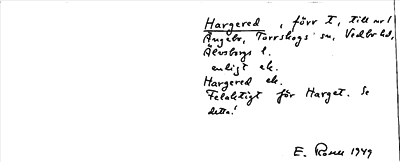 Hargered, förr t, till nr 1
Ångebr, Torrskogs sn, Vedbo hd,
Älvsborgs l.
enligt ek.
Hargered ek.
Felaktigt för Harget. Se
detta!
E. Rosell 1949